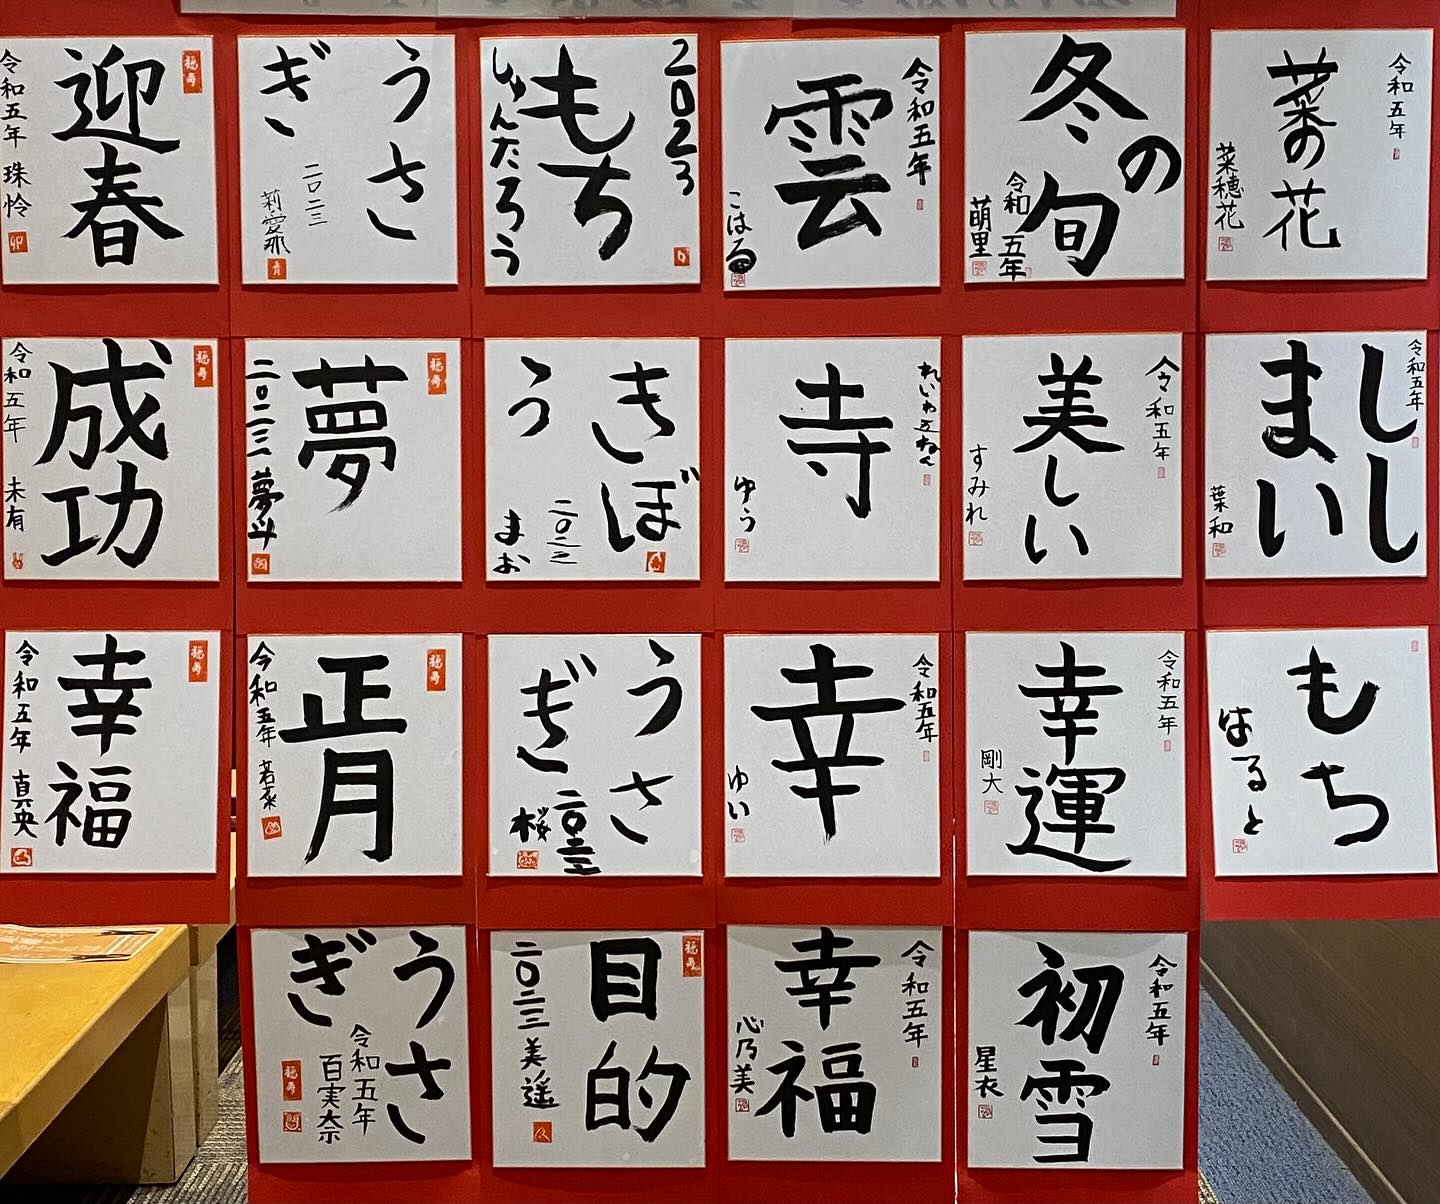 迎春
令和五年 珠怜
福寿
うさ
ぎ
二〇二三
莉愛那
2023
もち
しゅんたろう
令和五年
雲
こはる
冬の
旬
令和五年
萌里
令和五年
菜の花
菜穂花
福寿
成功
令和五年 未有
福寿
夢
二〇二三 夢斗
きぼ
う
二〇二三
まお
れいわ五ねん
寺
ゆう
令和五年
美しい
すみれ
令和五年
しし
まい
葉和
福寿
幸福
令和五年 真央
福寿
正月
令和五年 若菜
うさ
ぎ
二〇二三
桜
令和五年
幸
ゆい
令和五年
幸運
剛大
もち
はると
うさ
ぎ
令和五年
百実奈
福寿
福寿
目的
二〇二三 美遥
令和五年
幸福
心乃美
令和五年
初雪
星衣